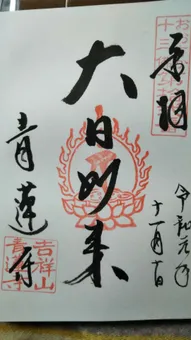 奉拝
大日如来
令和元年
十一月十日
青蓮寺
吉祥山
青蓮寺